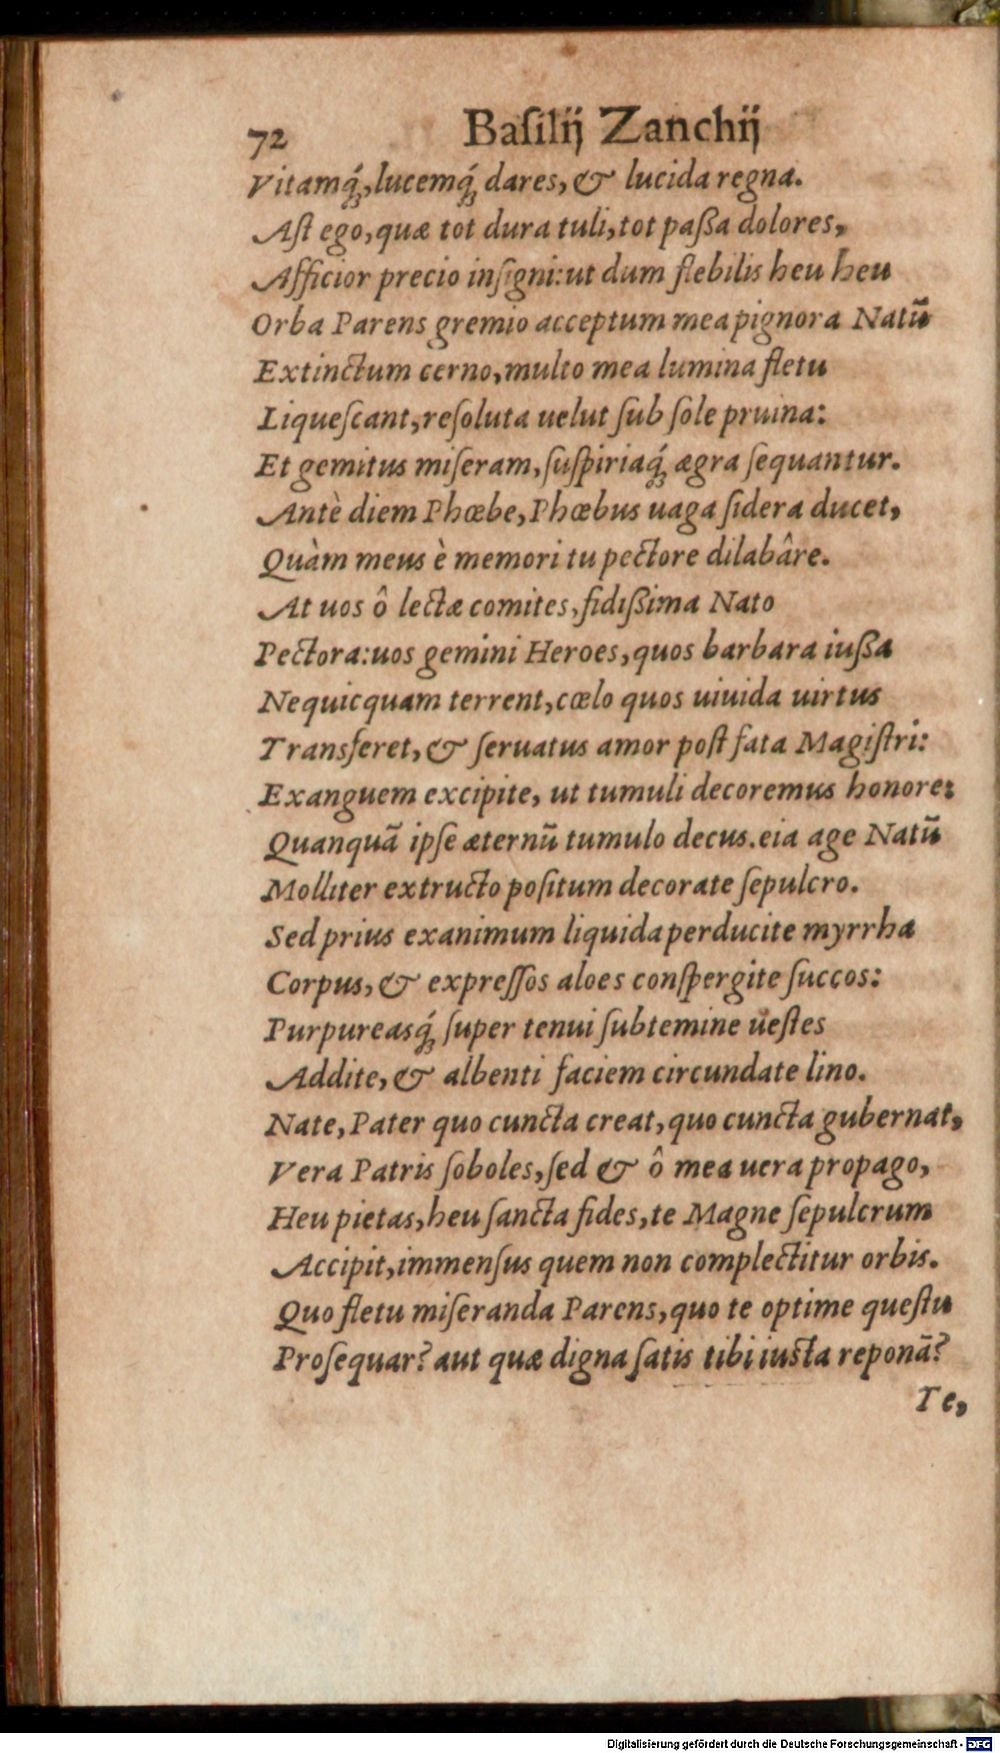 72 Baſilij Zanchij
Vitamq́;, lucemq́; dares, & lucida regna.
Aſt ego, quæ tot dura tuli, tot paßa dolores,
Afficior precio inſigni: ut dum flebilis heu heu
Orba Parens gremio acceptum mea pignora Natū
Extinctum cerno, multo mea lumina fletu
Liqueſcant, reſoluta uelut ſub ſole pruina:
Et gemitus miſeram, ſuſpiriaq́; ægra ſequantur.
Antè diem Phœbe, Phœbus uaga ſidera ducet,
Quàm meus è memori tu pectore dilabâre.
At uos ô lectæ comites, fidißima Nato
Pectora: uos gemini Heroes, quos barbara iußa
Nequicquam terrent, cœlo quos uiuida uirtus
Transferet, & ſeruatus amor poſt fata Magiſtri:
Exanguem excipite, ut tumuli decoremus honore:
Quanquā ipſe æternū tumulo decus. eia age Natū
Molliter extructo poſitum decorate ſepulcro.
Sed prius exanimum liquida perducite myrrha
Corpus, & expreſſos aloes conſpergite ſuccos:
Purpureasq́; ſuper tenui ſubtemine ueſtes
Addite, & albenti faciem circundate lino.
Nate, Pater quo cuncta creat, quo cuncta gubernat,
Vera Patris ſoboles, ſed & ô mea uera propago,
Heu pietas, heu ſancta fides, te Magne ſepulcrum
Accipit, immenſus quem non complectitur orbis.
Quo fletu miſeranda Parens, quo te optime queſtu
Proſequar? aut quæ digna ſatis tibi iuſta reponā?
Te,
Digitalisierung gefördert durch die Deutsche Forschungsgemeinschaft - DFG